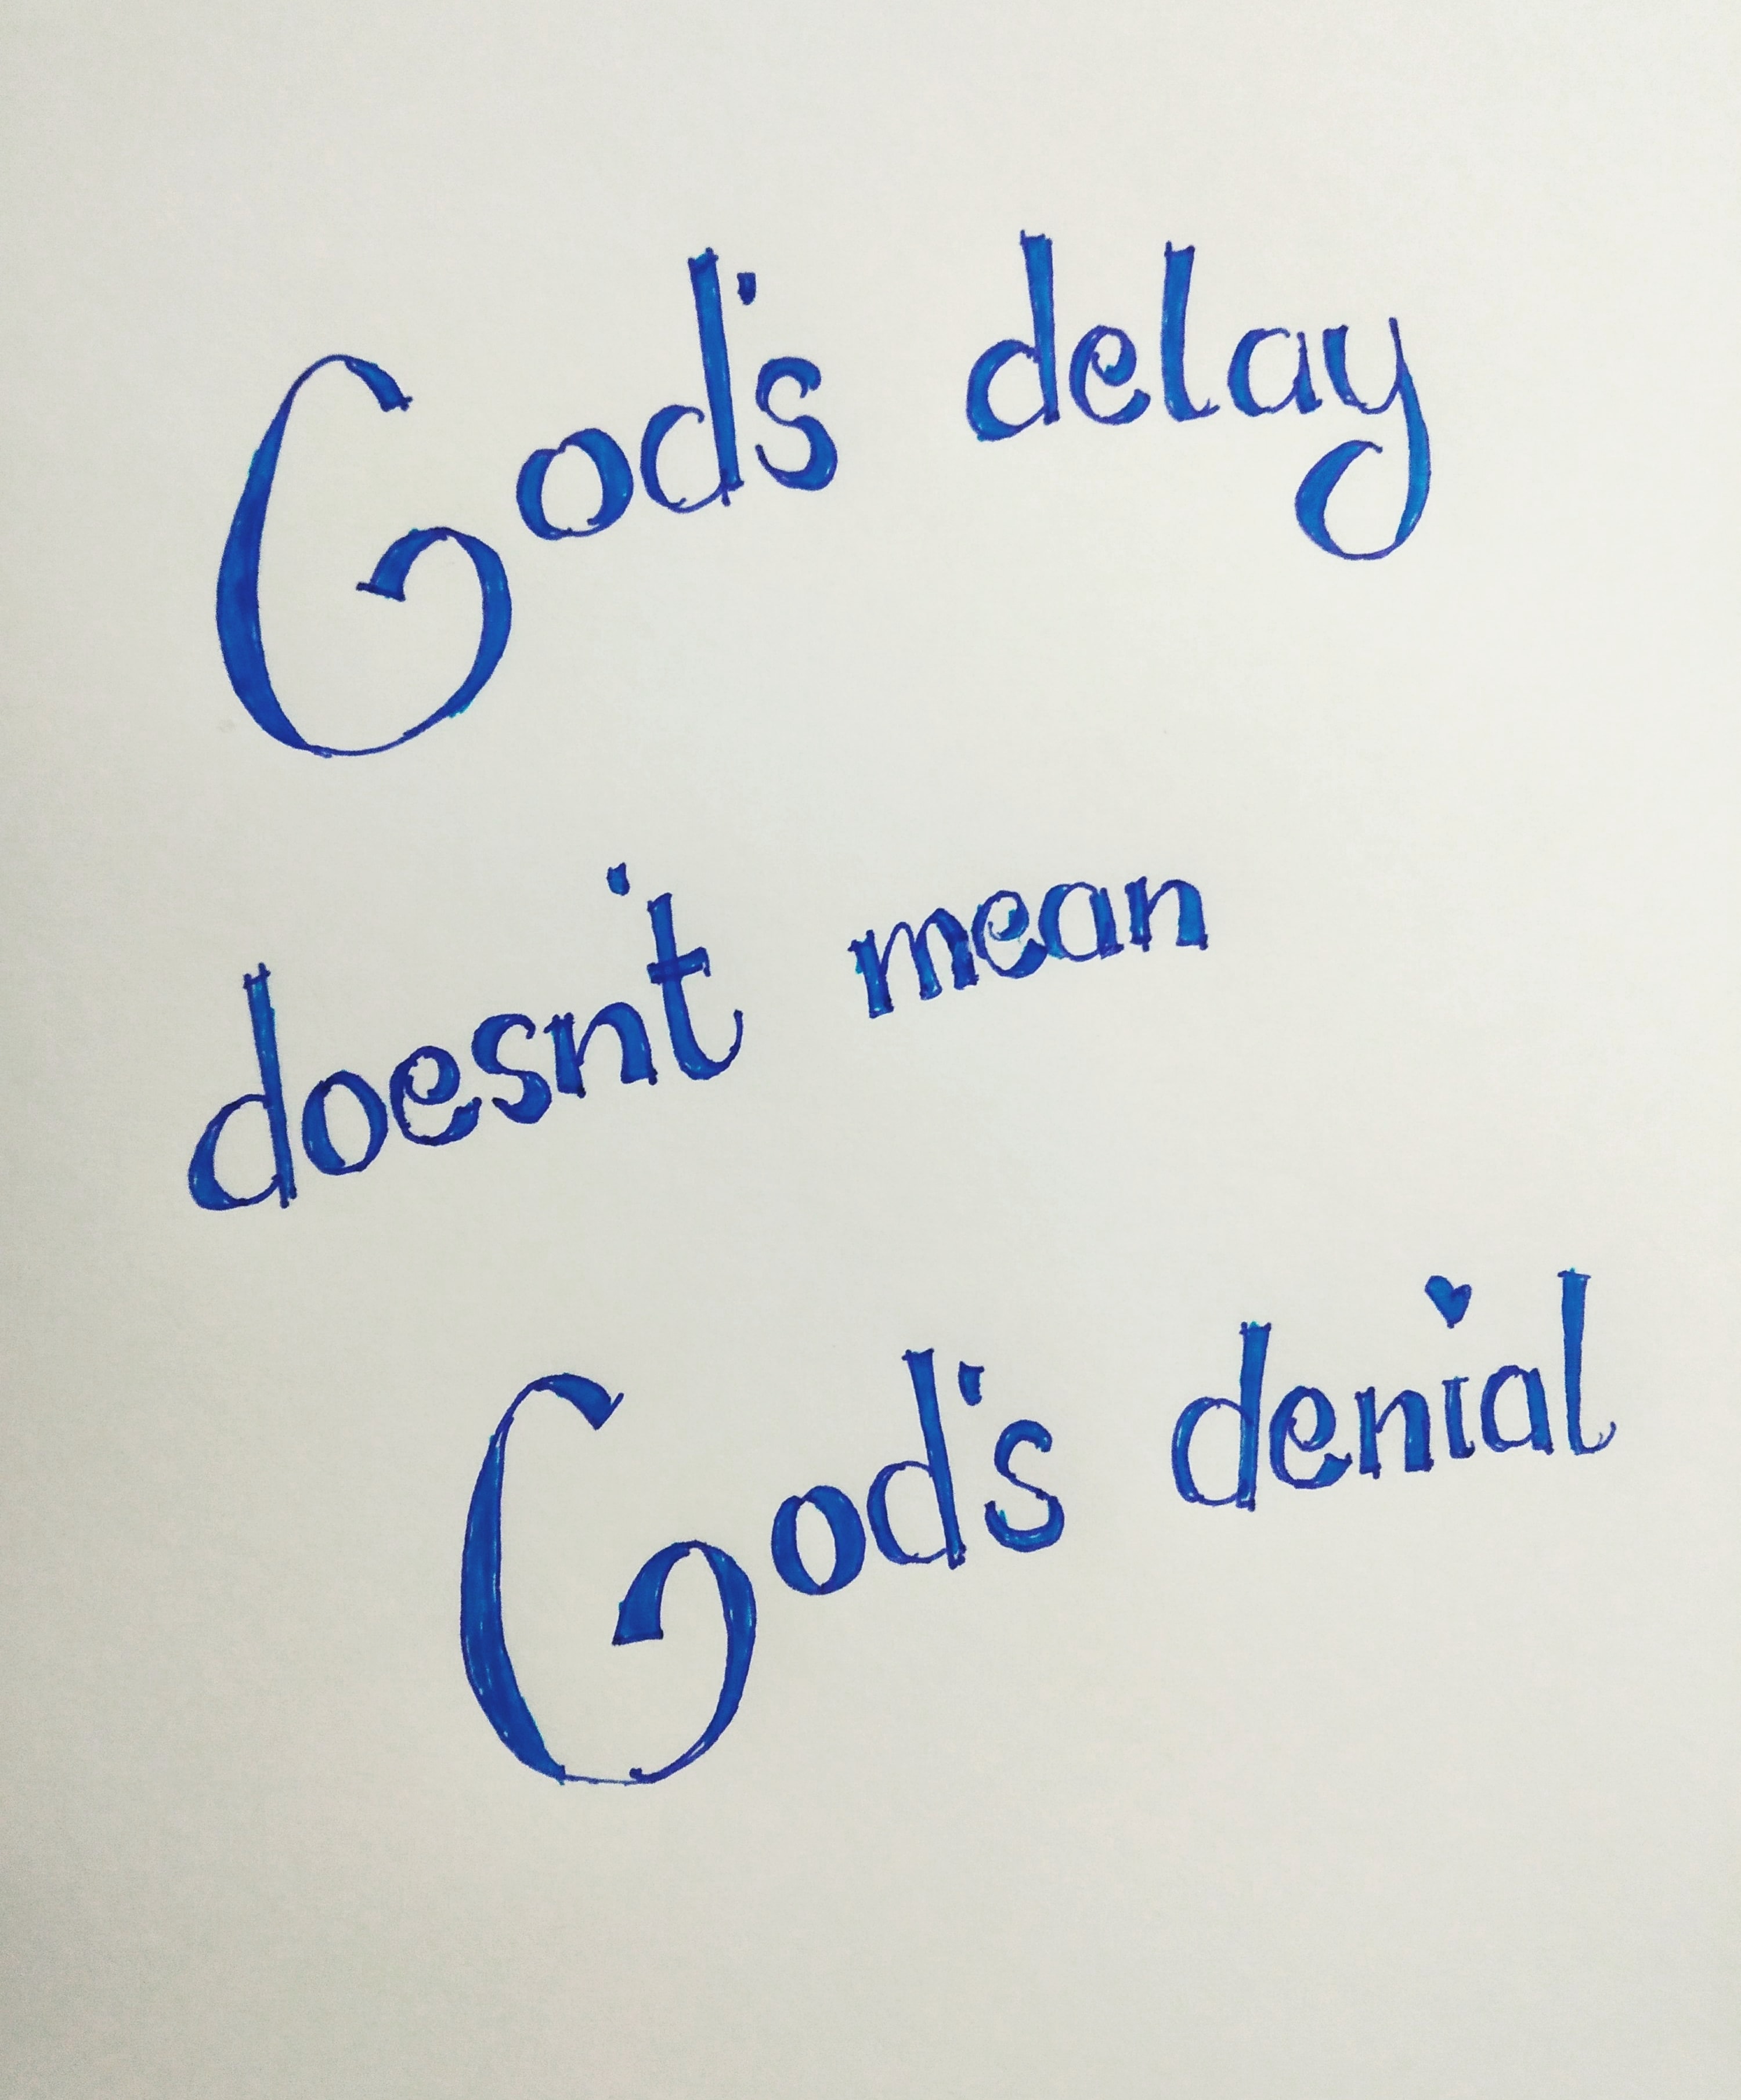 God's delay
doesn't mean
God's denial